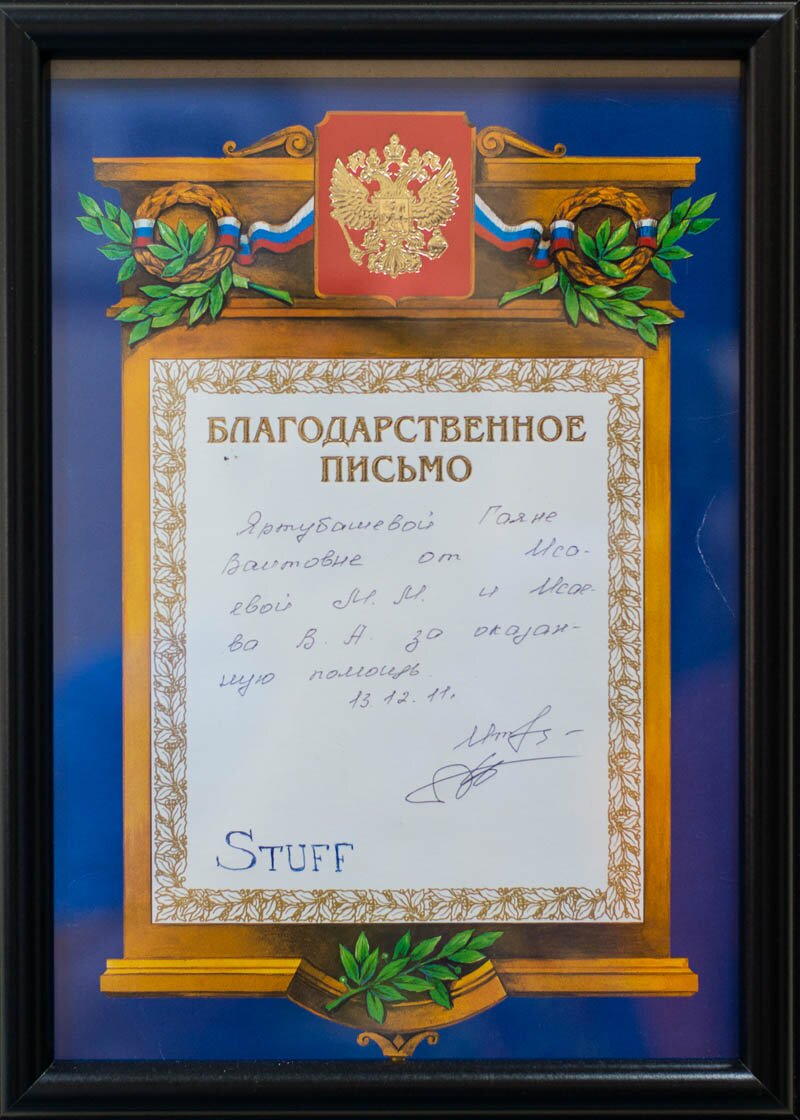 БЛАГОДАРСТВЕННОЕ
ПИСЬМО
Яртубашевой Гаяне
Ваитовне от Иса-
евой М. М. и Исае-
ва В. А. за оказан-
ную помощь
13.12.11.
STUFF